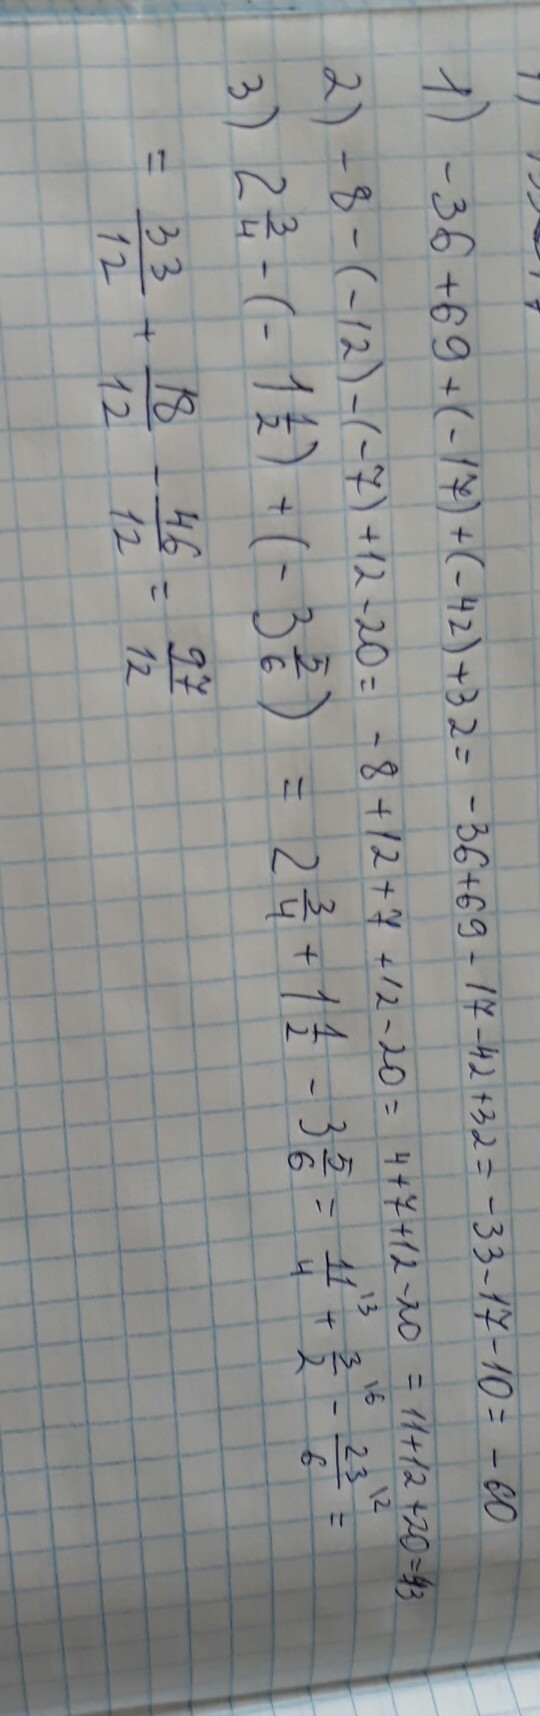 1)
1) -36+69+(-17)+(-42)+32= -36+69-17-42+32= -33-17-10= -60
2) -8-(-12)-(-7)+12-20= -8+12+7+12-20= 4+7+12-20 = 11+12+20=43
3) 2 3/4 - (- 1 1/2) + (- 3 5/6) = 2 3/4 + 1 1/2 - 3 5/6 = 11/4 13 + 3/2 16 - 23/6 12 =
= 33/12 + 18/12 - 46/12 = 97/12